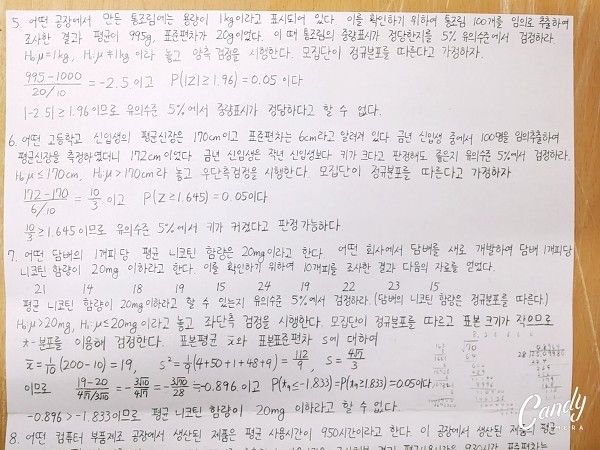 5. 어떤 공장에서 만든 통조림에는 용량이 1kg이라고 표시되어 있다. 이를 확인하기 위하여 통조림 100개를 임의로 추출하여
조사한 결과 평균이 995g, 표준편차가 20g이었다. 이 때 통조림의 중량표시가 정당한지를 5% 유의수준에서 검정하라.
H₀:μ=1kg, H₁:μ≠1kg 이라 놓고 양측 검정을 시행한다. 모집단이 정규분포를 따른다고 가정하자.
(995-1000)/(20/10) = -2.5 이고 P(|Z|≥1.96)=0.05 이다
|-2.5|≥1.96 이므로 유의수준 5%에서 중량표시가 정당하다고 할 수 없다.
6. 어떤 고등학교 신입생의 평균신장은 170cm이고 표준편차는 6cm라고 알려져 있다. 금년 신입생 중에서 100명을 임의추출하여
평균신장을 측정하였더니 172cm이었다. 금년 신입생은 작년 신입생보다 키가 크다고 판정해도 좋은지 유의수준 5%에서 검정하라.
H₀:μ≤170cm, H₁:μ>170cm라 놓고 우단측검정을 시행한다. 모집단이 정규분포를 따른다고 가정하자
(172-170)/(6/10) = 10/3 이고 P(Z≥1.645)=0.05이다
10/3≥1.645이므로 유의수준 5%에서 키가 커졌다고 판정가능하다
7. 어떤 담배의 1개피당 평균 니코틴 함량은 20mg이라고 한다. 어떤 회사에서 담배를 새로 개발하여 담배 1개피당
니코틴 함량이 20mg 이하라고 한다. 이를 확인하기 위하여 10개피를 조사한 결과 다음의 자료를 얻었다.
21 14 18 19 15 24 19 22 23 15
평균 니코틴 함량이 20mg이하라고 할 수 있는지 유의수준 5%에서 검정하라. (담배의 니코틴 함량은 정규분포를 따른다)
H₀:μ>20mg, H₁:μ≤20mg라고 놓고 좌단측 검정을 시행한다. 모집단이 정규분포를 따르고 표본 크기가 작으므로
t-분포를 이용해 검정한다. 표본평균 x̄와 표본표준편차 S에 대하여
x̄=1/10(200-10)=19, S²=1/9(4+50+1+48+9)=112/9, S=4√7/3
이므로 (19-20)/(4√7/3√10) = -3√10/4√7 = -3√70/28 =-0.896 이고 P(t₉≤-1.833)=P(t₉≥1.833)=0.05이다.
-0.896>-1.833이므로 평균 니코틴 함량이 20mg 이하라고 할 수 없다.
8. 어떤 컴퓨터 부품제조 공장에서 생산된 제품은 평균 사용시간이 950시간이라고 한다. 이 공장에서 생산된 제품의 평균
Candy
CAMERA